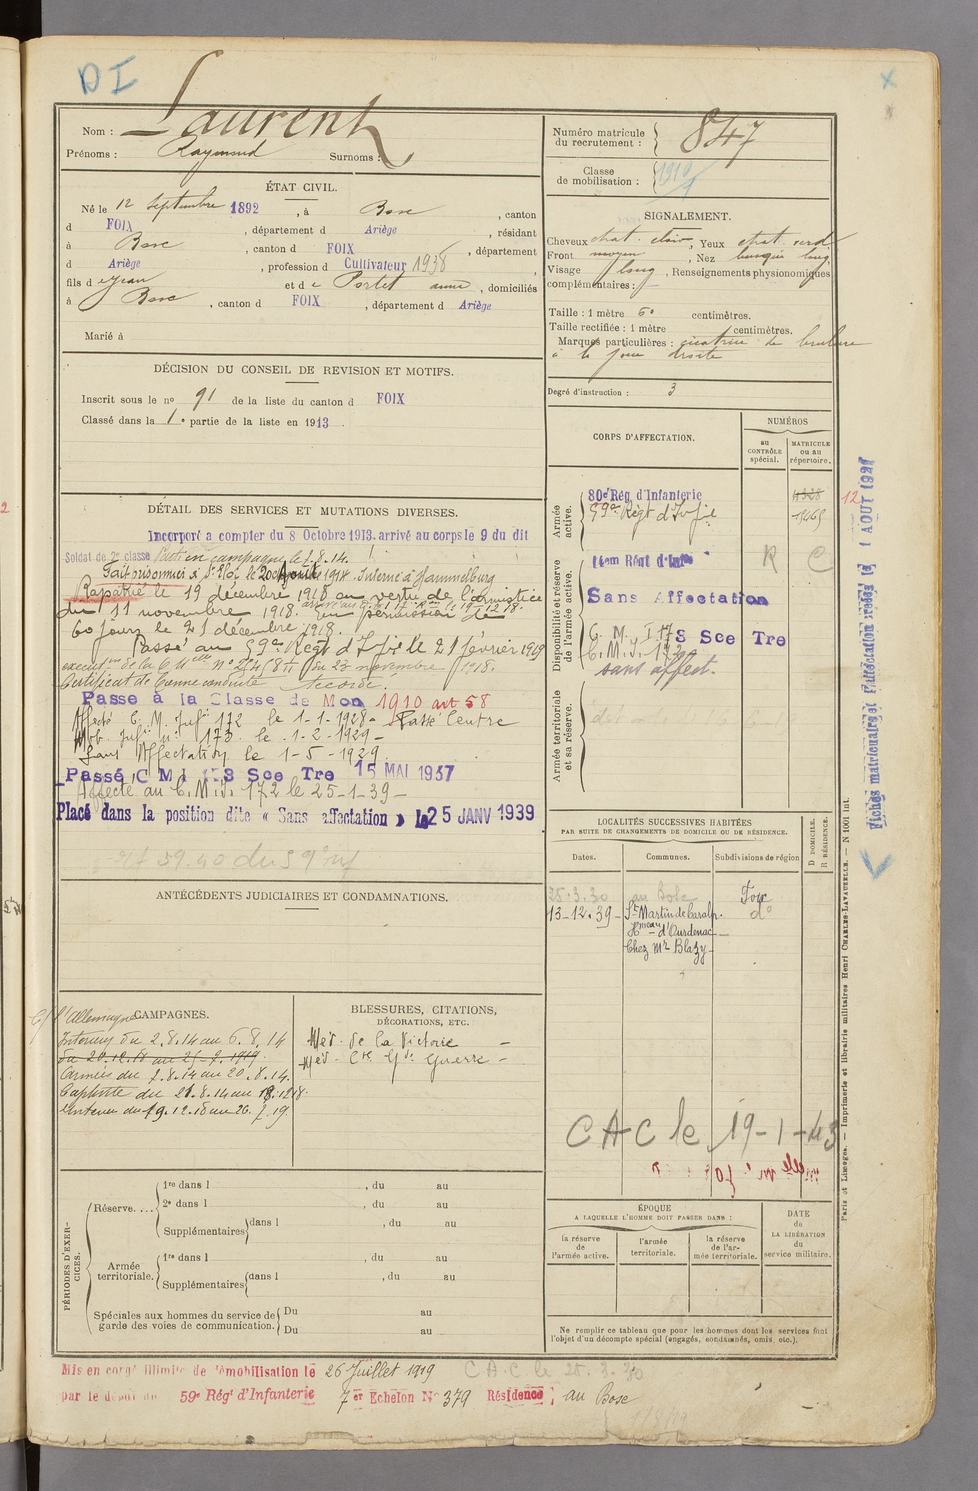 DI
Nom : Laurent
Prénoms : Raymond Surnoms :
ÉTAT CIVIL.
Né le 12 septembre 1892, à Bosc, canton
d FOIX, département d Ariège, résidant
à Bosc, canton d FOIX, département
d Ariège, profession d Cultivateur 1938
fils d e Jean et d e Portet anne, domiciliés
à Bosc, canton d FOIX, département d Ariège
Marié à
DÉCISION DU CONSEIL DE REVISION ET MOTIFS.
Inscrit sous le no 91 de la liste du canton d FOIX
Classé dans la 1e partie de la liste en 1913.
DÉTAIL DES SERVICES ET MUTATIONS DIVERSES.
Incorporé a compter du 8 Octobre 1913. arrivé au corps le 9 du dit
Soldat de 2e classe Parti en campagne le 7.8.14.
Fait prisonnier à St Eloi le 20 Août 1914. Interné à Hammelburg
Rapatrié le 19 décembre 1918 en vertu de l'armistice
du 11 novembre 1918. En permission de
60 jours le 21 décembre 1918.
Passé au 59e Régt d'Infie le 21 février 1919
execution de la C. Melle No du 23 novembre 1918.
Certificat de bonne conduite Accordé.
Passé à la Classe de Mon 1910 art 58
Affecté C. M. Infie 172 le 1-1-1928 - Passé Centre
Mob. Infie n° 173 le 1-2-1929 -
Sans Affectation le 1-5-1929
Passé C M I 173 Sce Tre 15 MAI 1937
Affecté au C. M. I. 172 le 25-1-39 -
Placé dans la position dite « Sans affectation » le 25 JANV 1939
ANTÉCÉDENTS JUDICIAIRES ET CONDAMNATIONS.
CAMPAGNES.
C/ l'Allemagne
Intérieur du 2.8.14 au 6.8.14
Armées du 7.8.14 au 20.8.14.
Captivité du 21.8.14 au 18.12.18.
Intérieur du 19.12.18 au 26.7.19.
BLESSURES, CITATIONS,
DÉCORATIONS, ETC.
Med. de la Victoire -
Med. Cve Gde Guerre -
PÉRIODES D'EXERCICES.
Réserve....
1re dans l , du au
2e dans l , du au
Supplémentaires dans l , du au
Armée
territoriale.
1re dans l , du au
Supplémentaires dans l , du au
Spéciales aux hommes du service de
garde des voies de communication.
Du au
Du au
Numéro matricule
du recrutement : 847
Classe
de mobilisation : 1910
SIGNALEMENT.
Cheveux chat. clair, Yeux chat. verd
Front moyen, Nez busqué long
Visage long, Renseignements physionomiques
complémentaires :
Taille : 1 mètre 60 centimètres.
Taille rectifiée : 1 mètre centimètres.
Marques particulières : cicatrice de brulure
à la joue droite
Degré d'instruction : 3
CORPS D'AFFECTATION.
NUMÉROS
au
CONTRÔLE
spécial.
MATRICULE
ou au
répertoire.
Armée
active.
80e Rég. d'Infanterie
59e Régt d'Infie
12
Disponibilité et réserve
de l'armée active.
R C
Sans Affectation
C. M. I 173 Sce Tre
C. M. I. 172
sans affect.
Armée territoriale
et sa réserve.
LOCALITÉS SUCCESSIVES HABITÉES
PAR SUITE DE CHANGEMENTS DE DOMICILE OU DE RÉSIDENCE.
Dates. Communes. Subdivisions de région
D DOMICILE.
R RÉSIDENCE.
25.3.30 au Bosc Foix
13-12.39 - St Martin de Caralp. d°
Hameau d'Ourdenac -
Chez Mr Blazy -
CAC le 19-1-43
ÉPOQUE
A LAQUELLE L'HOMME DOIT PASSER DANS :
la réserve
de
l'armée active.
l'armée
territoriale.
la réserve
de l'ar-
mée territoriale.
DATE
de
LA LIBÉRATION
du
service militaire.
Ne remplir ce tableau que pour les hommes dont les services font
l'objet d'un décompte spécial (engagés, condamnés, omis, etc.).
Paris et Limoges. — Imprimerie et librairie militaires Henri CHARLES-LAVAUZELLE. — N 1001 int.
Mis en congé illimité de démobilisation le 26 Juillet 1919
CAC le 25.3.30
par le dépôt du 59e Régt d'Infanterie 7er Echelon No 379 Résidence : au Bosc